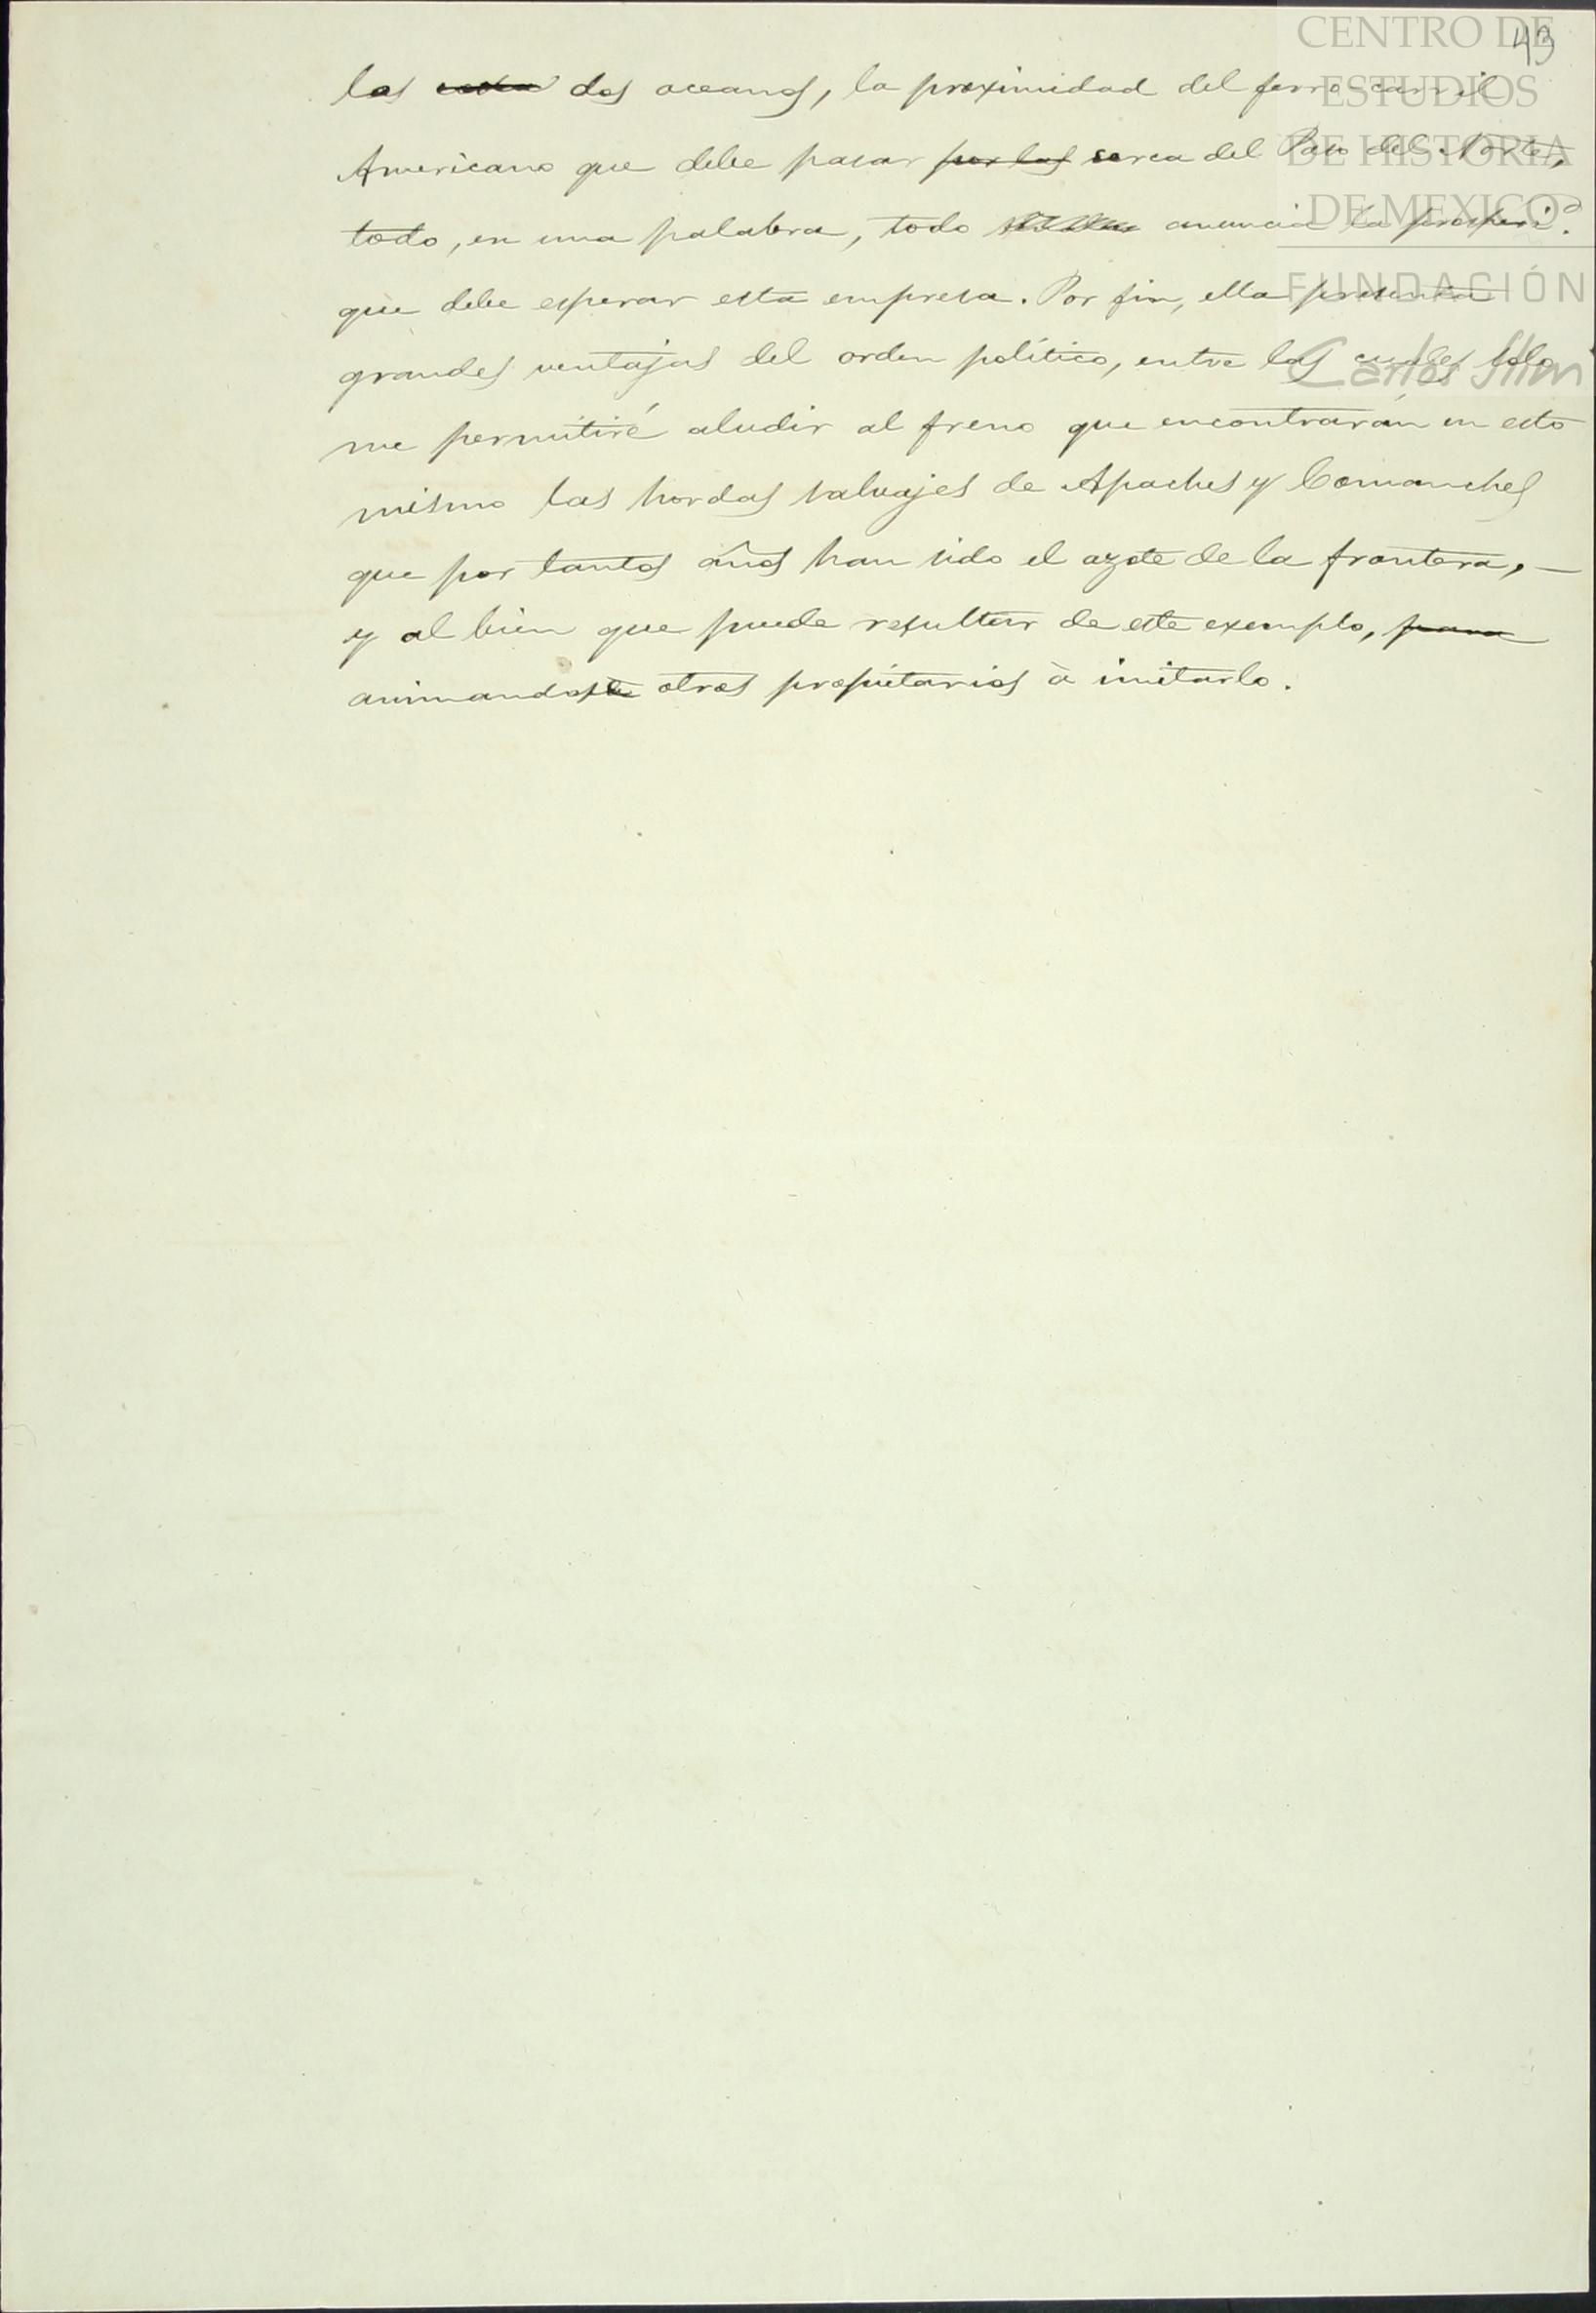 43
CENTRO DE
ESTUDIOS
DE HISTORIA
DE MEXICO
FUNDACIÓN
Carlos Slim
los dos oceanos, la proximidad del ferro-carril
Americano que debe pasar por los serca del Paso del Norte,
todo, en una palabra, todo anuncia la prosperi.d
que debe esperar esta empresa. Por fin, ella presenta
grandes ventajas del orden politico, entre las cuales solo
me permitiré aludir al freno que encontrarán en esto
mismo las hordas salvajes de Apaches y Comanches
que por tantos años han sido el azote de la frontera, —
y al bien que puede resultar de este exemplo, para
animando otros propietarios à imitarlo.